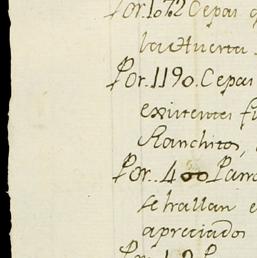 Por. 1072 Cepas q
la Huerta
Por. 1190. Cepas
existentes fu
Ranchitos,
Por. 400 Parra
se hallan e
apreciados
Por